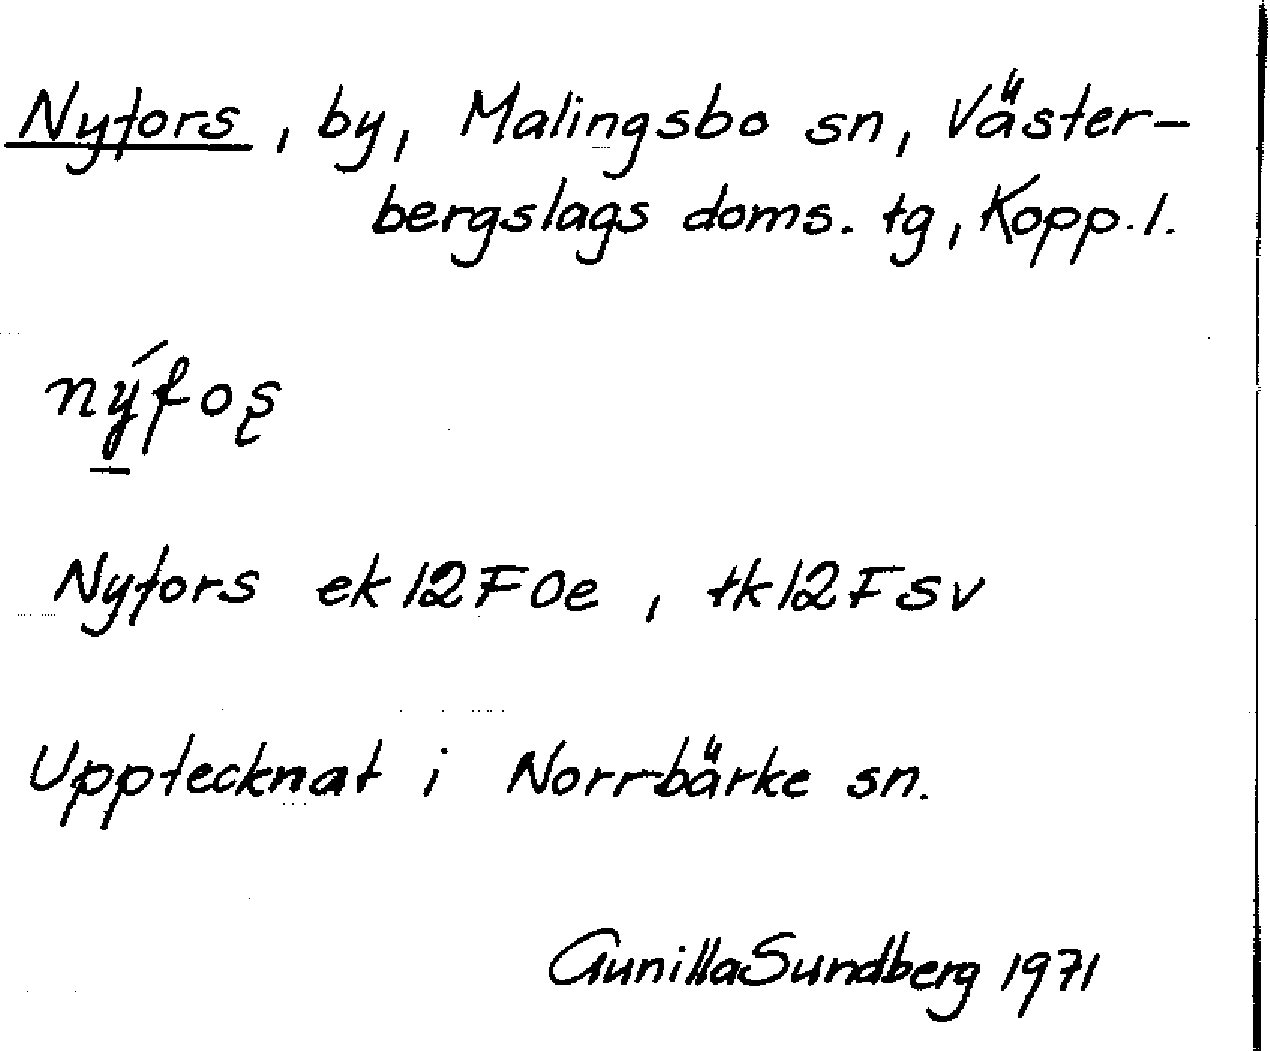 Nyfors, by, Malingsbo sn, Väster-
bergslags doms. tg, Kopp. l.
nýfoʂ
Nyfors ek 12F0e, tk 12F sv
Upptecknat i Norrbärke sn.
Gunilla Sundberg 1971